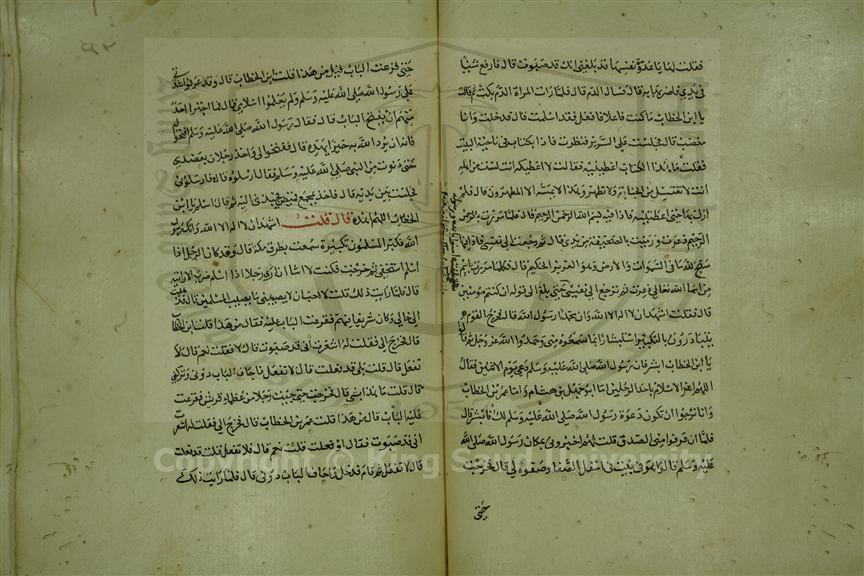 فقلت لها يا عدوة نفسها قد بلغني انك قد صبوت قال فارفع شيا
في يدي فاضربها به قال فسال الدم قال فلما رات المراة الدم بكت ثم قالت
يا ابن الخطاب ما كنت فاعلا فافعل فقد اسلمت قال فدخلت وانا
مغضب قال فجلست على السرير فنظرت فاذا بكتاب في ناحية البيت
فقلت ما هذا الكتاب اعطينيه فقالت لا اعطيكه انت لست من اهله
انت لا تغتسل من الجنابة ولا تطهر وهذا لا يمسه الا المطهرون قال فلم
ازل بها حتى اعطتنيه فاذا فيه بسم الله الرحمن الرحيم قال فلما مررت بالرحمن
الرحيم ذعرت ورميت بالصحيفة من يدي قال ثم رجعت الى نفسي فاذا فيها
سبح لله ما في السموات والارض وهو العزيز الحكيم قال فكلما مررت باسم
من اسما الله تعالى ذعرت ثم ترجع الي نفسي حتى بلغ الى قوله ان كنتم مومنين
قال فقلت اشهد ان لا اله الا الله وان محمدا رسول الله قال فخرج القوم
يتبادرون بالتكبير استبشارا بما سمعوه مني وحمدوا الله عز وجل ثم قالوا
يا ابن الخطاب ابشر فان رسول الله صلى الله عليه وسلم دعى يوم الاثنين فقال
اللهم اعز الاسلام باحد الرجلين اما ابو جهل بن هشام واما عمر بن الخطاب
وانا نرجوا ان تكون دعوة رسول الله صلى الله عليه وسلم لك فابشر قال
فلما ان عرفوا مني الصدق قلت لهم اخبروني بمكان رسول الله صلى الله
عليه وسلم قالوا هو في بيت في اسفل الصفا وصفوه لي قال فخرجت
حتى
٩٢
حتى قرعت الباب قيل من هذا قلت ابن الخطاب قال وقد عرفوا شدتي
على رسول الله صلى الله عليه وسلم ولم يعلموا اسلامي قال فما اجترا احد
منهم ان يفتح الباب قال فقال رسول الله صلى الله عليه وسلم افتحوا له
فانه ان يرد الله به خيرا يهده قال ففتحوا لي واخذ رجلان بعضدي
حتى دنوت من النبي صلى الله عليه وسلم فقال ارسلوه قال فارسلوني
فجلست بين يديه قال فاخذ بمجمع قميصي فجذبني اليه ثم قال اسلم يا ابن
الخطاب اللهم اهده قال قلت اشهد ان لا اله الا الله وانك رسول
الله فكبر المسلمون تكبيرة سمعت بطرق مكة قال وقد كان الرجل اذا
اسلم استخفى ثم خرجت فكنت لا اشا ان ارى رجلا اذا اسلم ضرب الا رايته
قال فلما رايت ذلك قلت لا احب ان لا يصيبني ما يصيب المسلمين قال فذهبت
الى خالي وكان شريفا فيهم فقرعت الباب عليه فقال من هذا قلت ابن الخطاب
قال فخرج الي فقلت له اشعرت اني قد صبوت قال لا فقلت نعم قال لا
تفعل قال قلت بلى قد فعلت قال لا تفعل فاجاف الباب دوني وتركني
قال قلت ما هذا بشي قال فخرجت حتى جيت رجلا من عظما قريش فقرعت
عليه الباب قال من هذا قلت عمر بن الخطاب قال فخرج الي فقلت له اشعرت
اني قد صبوت فقال او فعلت قلت نعم قال فلا تفعل قلت قد فعلت
قال لا تفعل ثم قام فدخل فاجاف الباب دوني قال فلما رايت ذلك
Copyright © King Saud University